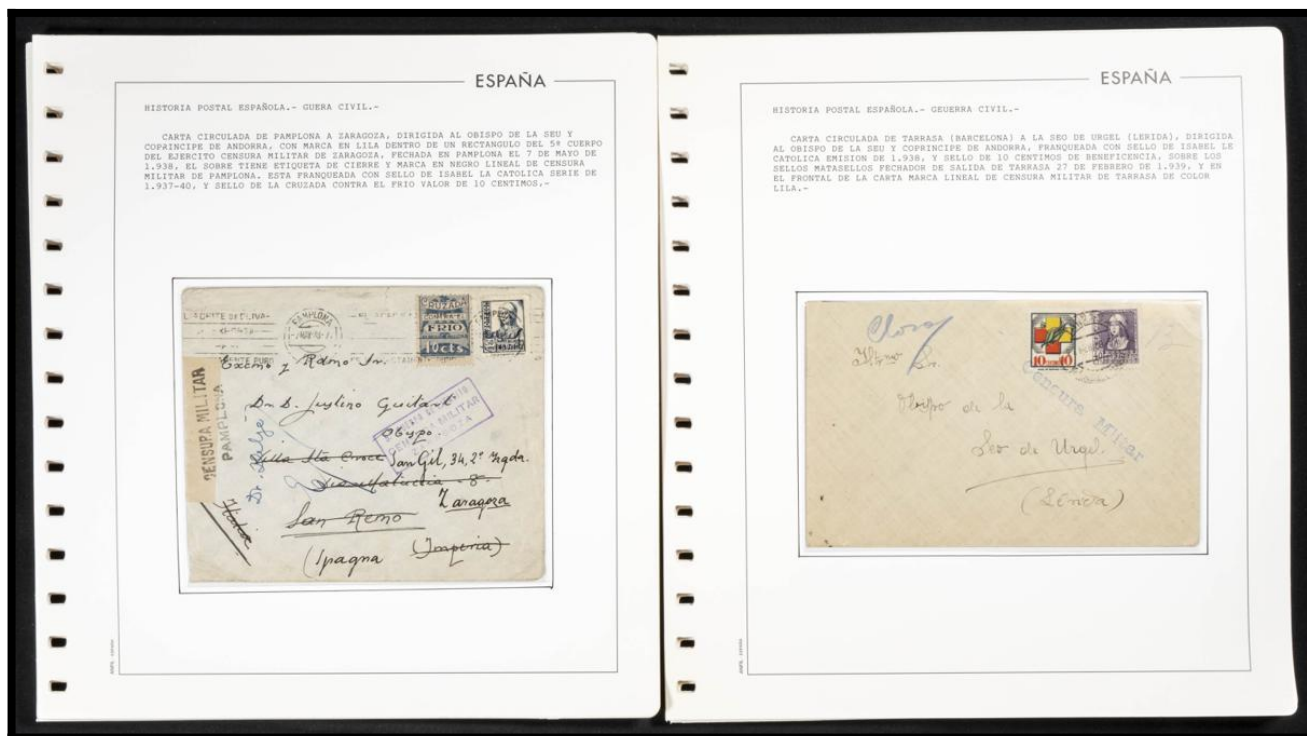 ESPAÑA
HISTORIA POSTAL ESPAÑOLA.- GUERA CIVIL.-
CARTA CIRCULADA DE PAMPLONA A ZARAGOZA, DIRIGIDA AL OBISPO DE LA SEU Y
COPRINCIPE DE ANDORRA, CON MARCA EN LILA DENTRO DE UN RECTANGULO DEL 5º CUERPO
DEL EJERCITO CENSURA MILITAR DE ZARAGOZA, FECHADA EN PAMPLONA EL 7 DE MAYO DE
1.938, EL SOBRE TIENE ETIQUETA DE CIERRE Y MARCA EN NEGRO LINEAL DE CENSURA
MILITAR DE PAMPLONA. ESTA FRANQUEADA CON SELLO DE ISABEL LA CATOLICA SERIE DE
1.937-40, Y SELLO DE LA CRUZADA CONTRA EL FRIO VALOR DE 10 CENTIMOS.-
PAMPLONA
CRUZADA
FRIO
10 cts.
CENSURA MILITAR
PAMPLONA
Excmo y Rdmo Sr.
Dr. D. Justino Guitart
Obispo
CENSURA MILITAR
ZARAGOZA
Villa Sta Croce San Gil, 34, 2º
Zaragoza
San Remo
Italia
(Ipagna (Imperia)
ESPAÑA
HISTORIA POSTAL ESPAÑOLA.- GEUERRA CIVIL.-
CARTA CIRCULADA DE TARRASA (BARCELONA) A LA SEO DE URGEL (LERIDA), DIRIGIDA
AL OBISPO DE LA SEU Y COPRINCIPE DE ANDORRA, FRANQUEADA CON SELLO DE ISABEL LE
CATOLICA EMISION DE 1.938, Y SELLO DE 10 CENTIMOS DE BENEFICENCIA, SOBRE LOS
SELLOS MATASELLOS FECHADOR DE SALIDA DE TARRASA 27 DE FEBRERO DE 1.939, Y EN
EL FRONTAL DE LA CARTA MARCA LINEAL DE CENSURA MILITAR DE TARRASA DE COLOR
LILA.-
10 10
Censura Militar
Sr.
Obispo de la
Seo de Urgel
(Lérida)